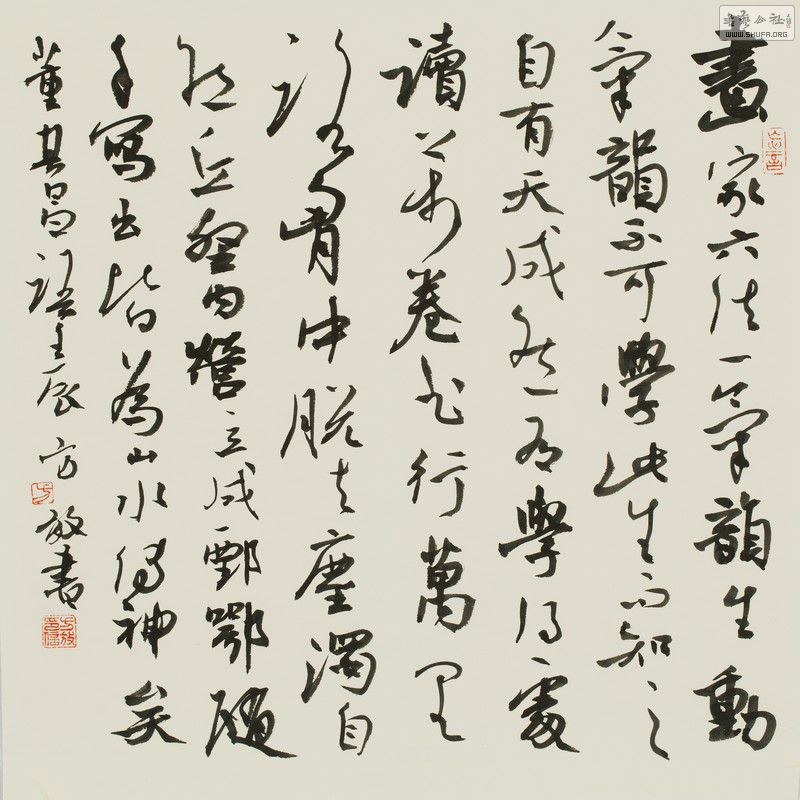 畫家六法一氣韻生動
氣韻不可學此生而知之
自有天成然一有學得處
讀萬卷書行萬里
路胸中脫去塵濁自
然丘壑內營立成鄄鄂隨
手寫出皆為山水傳神矣
董其昌語壬辰方放書
WWW.SHUFA.ORG